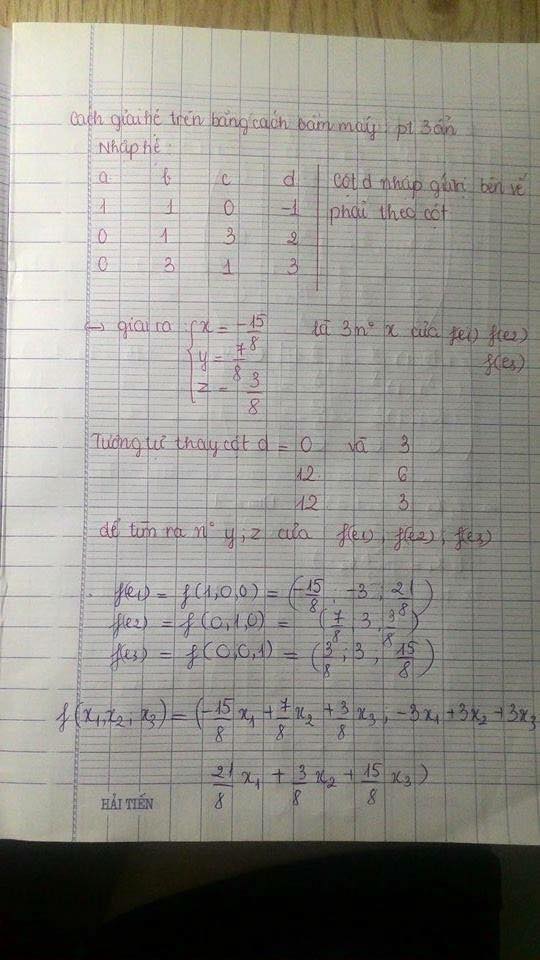 Cách giải hệ trên bằng cách bấm máy: pt 3 ẩn
Nhập hệ:
a b c d Cột d nhập giá trị bên vế
1 1 0 -1 phải theo cột
0 1 3 2
0 3 1 3
↔ giải ra: { x = -15/8 là 3 n° x của f(e1) f(e2)
y = 7/8 f(e3)
z = 3/8
Tương tự thay cột d = 0 và 3
12 6
12 3
để tìm ra n° y, z của f(e1), f(e2), f(e3)
f(e1) = f(1,0,0) = (-15/8; -3; 21/8)
f(e2) = f(0,1,0) = (7/8; 3; 3/8)
f(e3) = f(0,0,1) = (3/8; 3; 15/8)
f(x1, x2; x3) = (-15/8 x1 + 7/8 x2 + 3/8 x3; -3x1 + 3x2 + 3x3
21/8 x1 + 3/8 x2 + 15/8 x3)
HẢI TIẾN